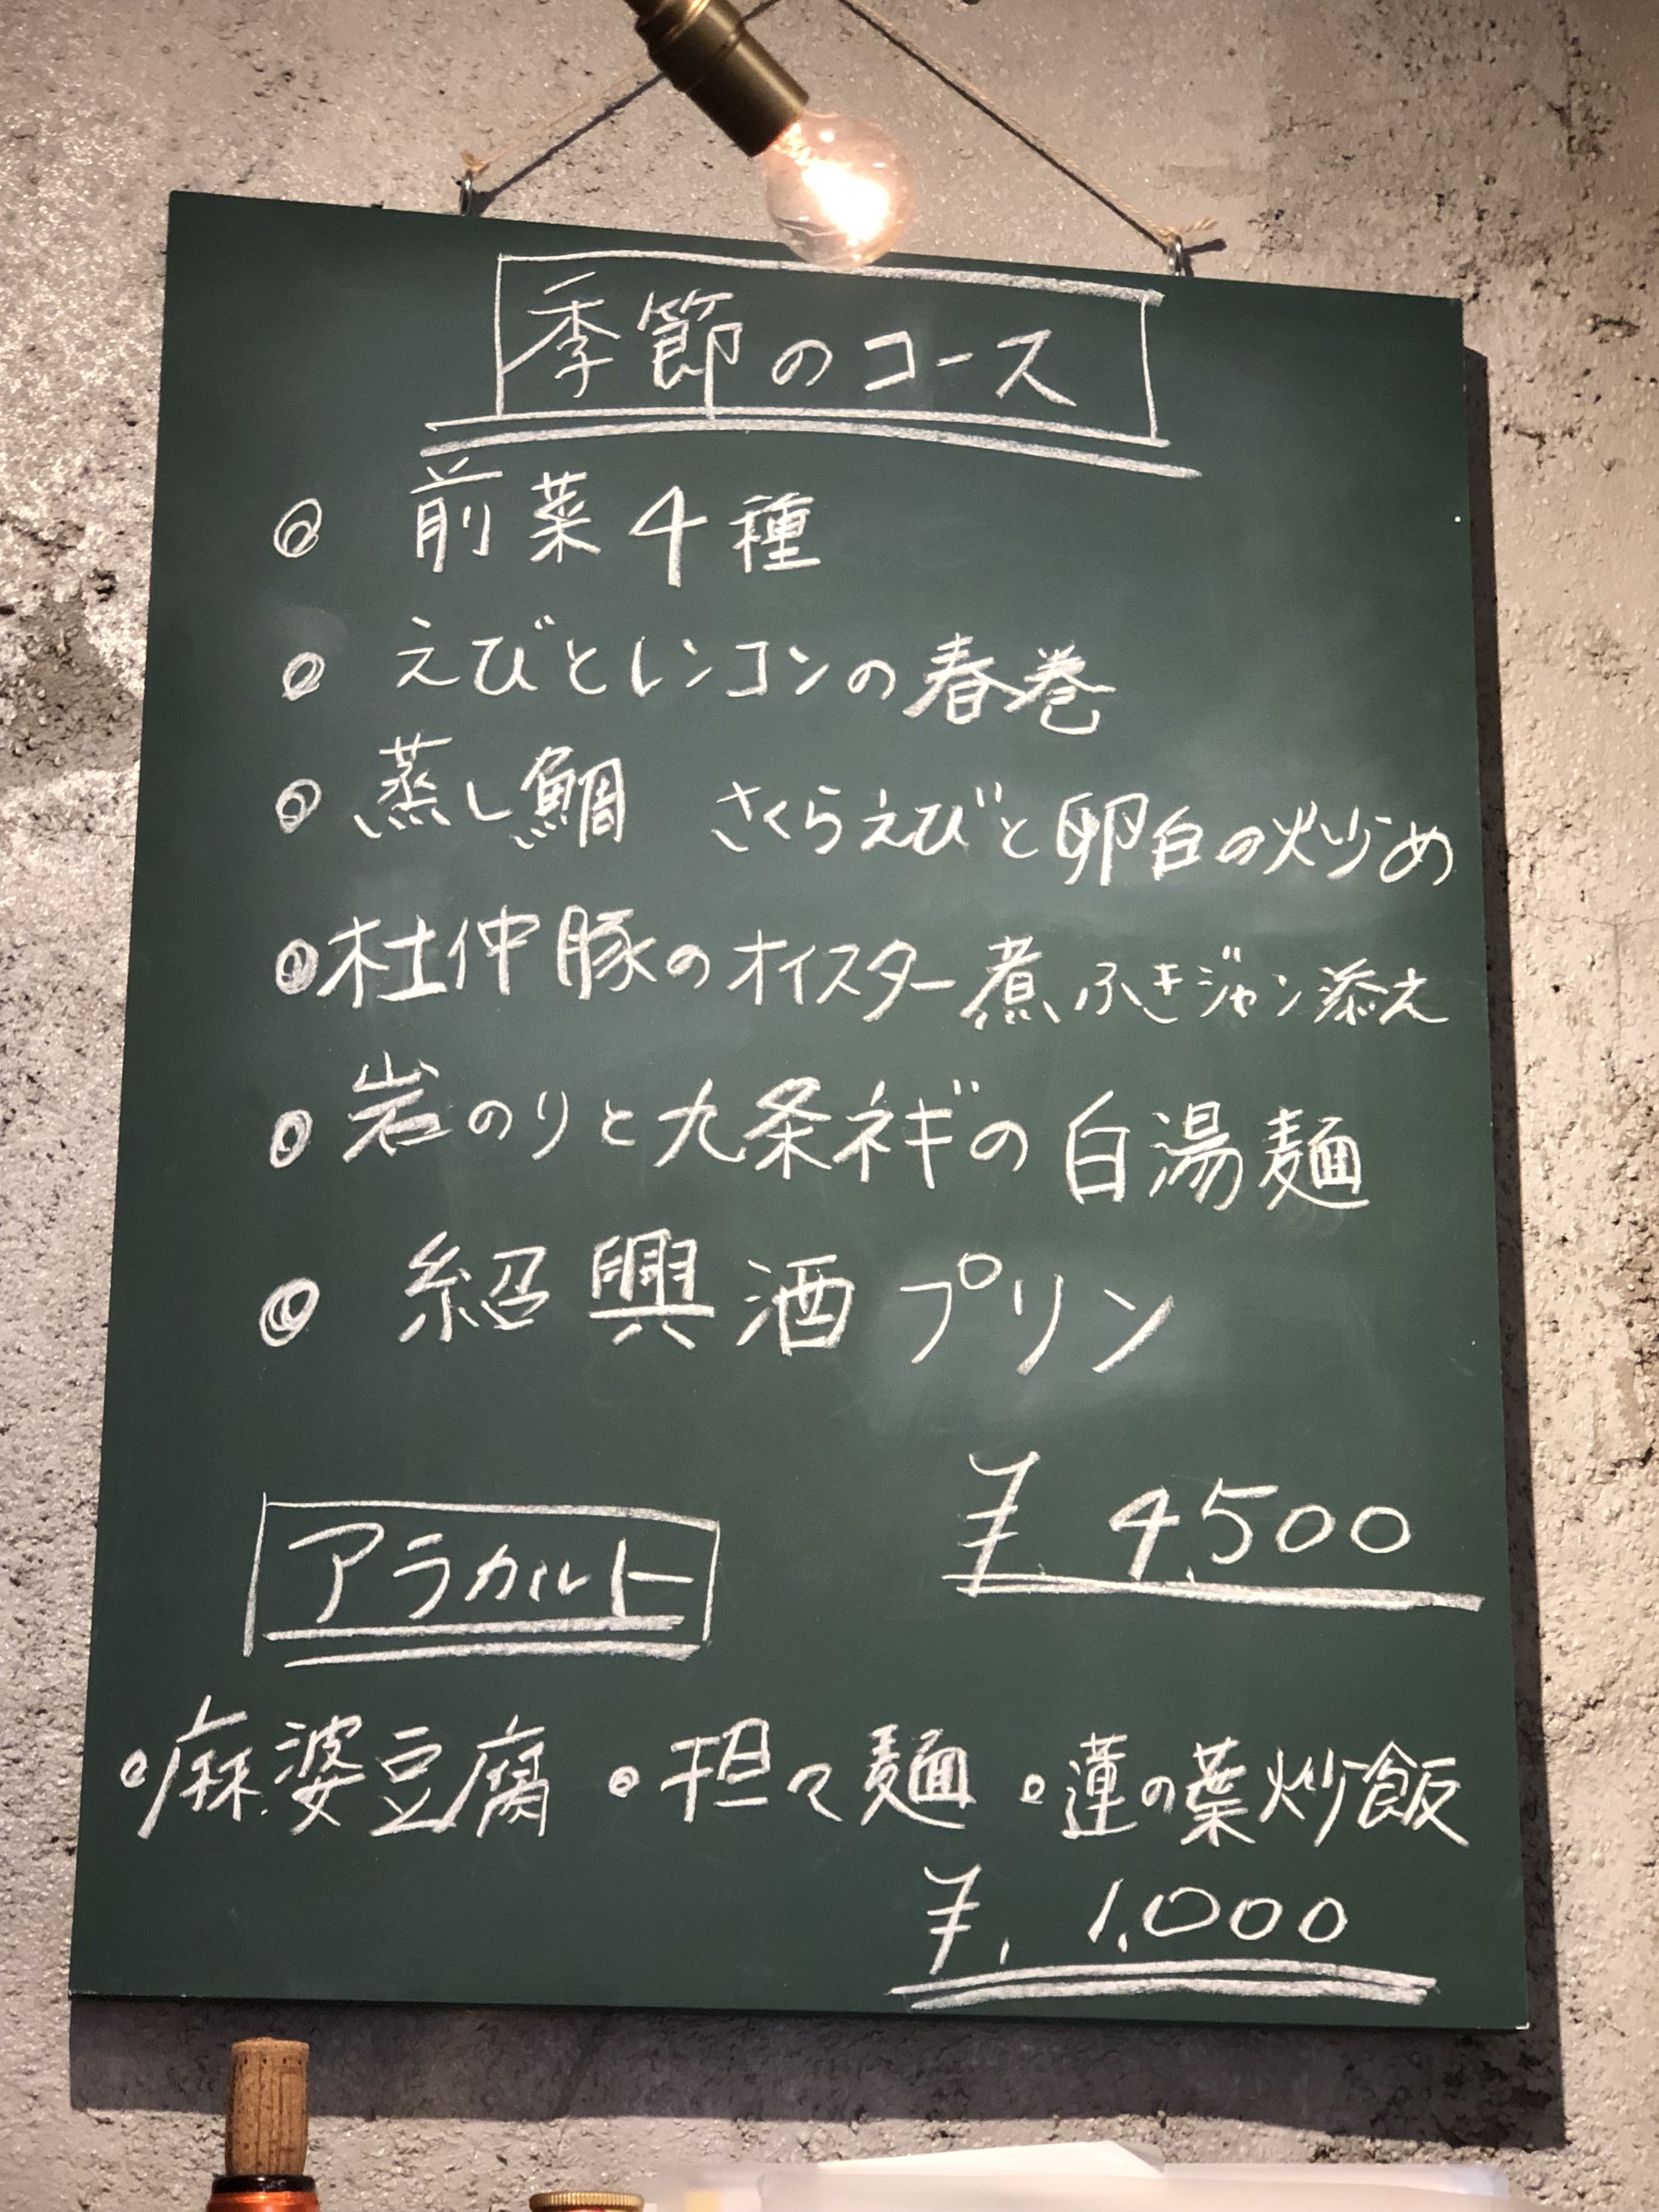 季節のコース
◎ 前菜4種
◎ えびとレンコンの春巻
◎ 蒸し鯛 さくらえびと卵白の炒め
◎ 杜仲豚のオイスター煮 ふきジャン添え
◎ 岩のりと九条ネギの白湯麺
◎ 紹興酒プリン
¥ 4,500
アラカルト
◎麻婆豆腐 ◎担々麺 ◎蓮の葉炒飯
¥, 1,000